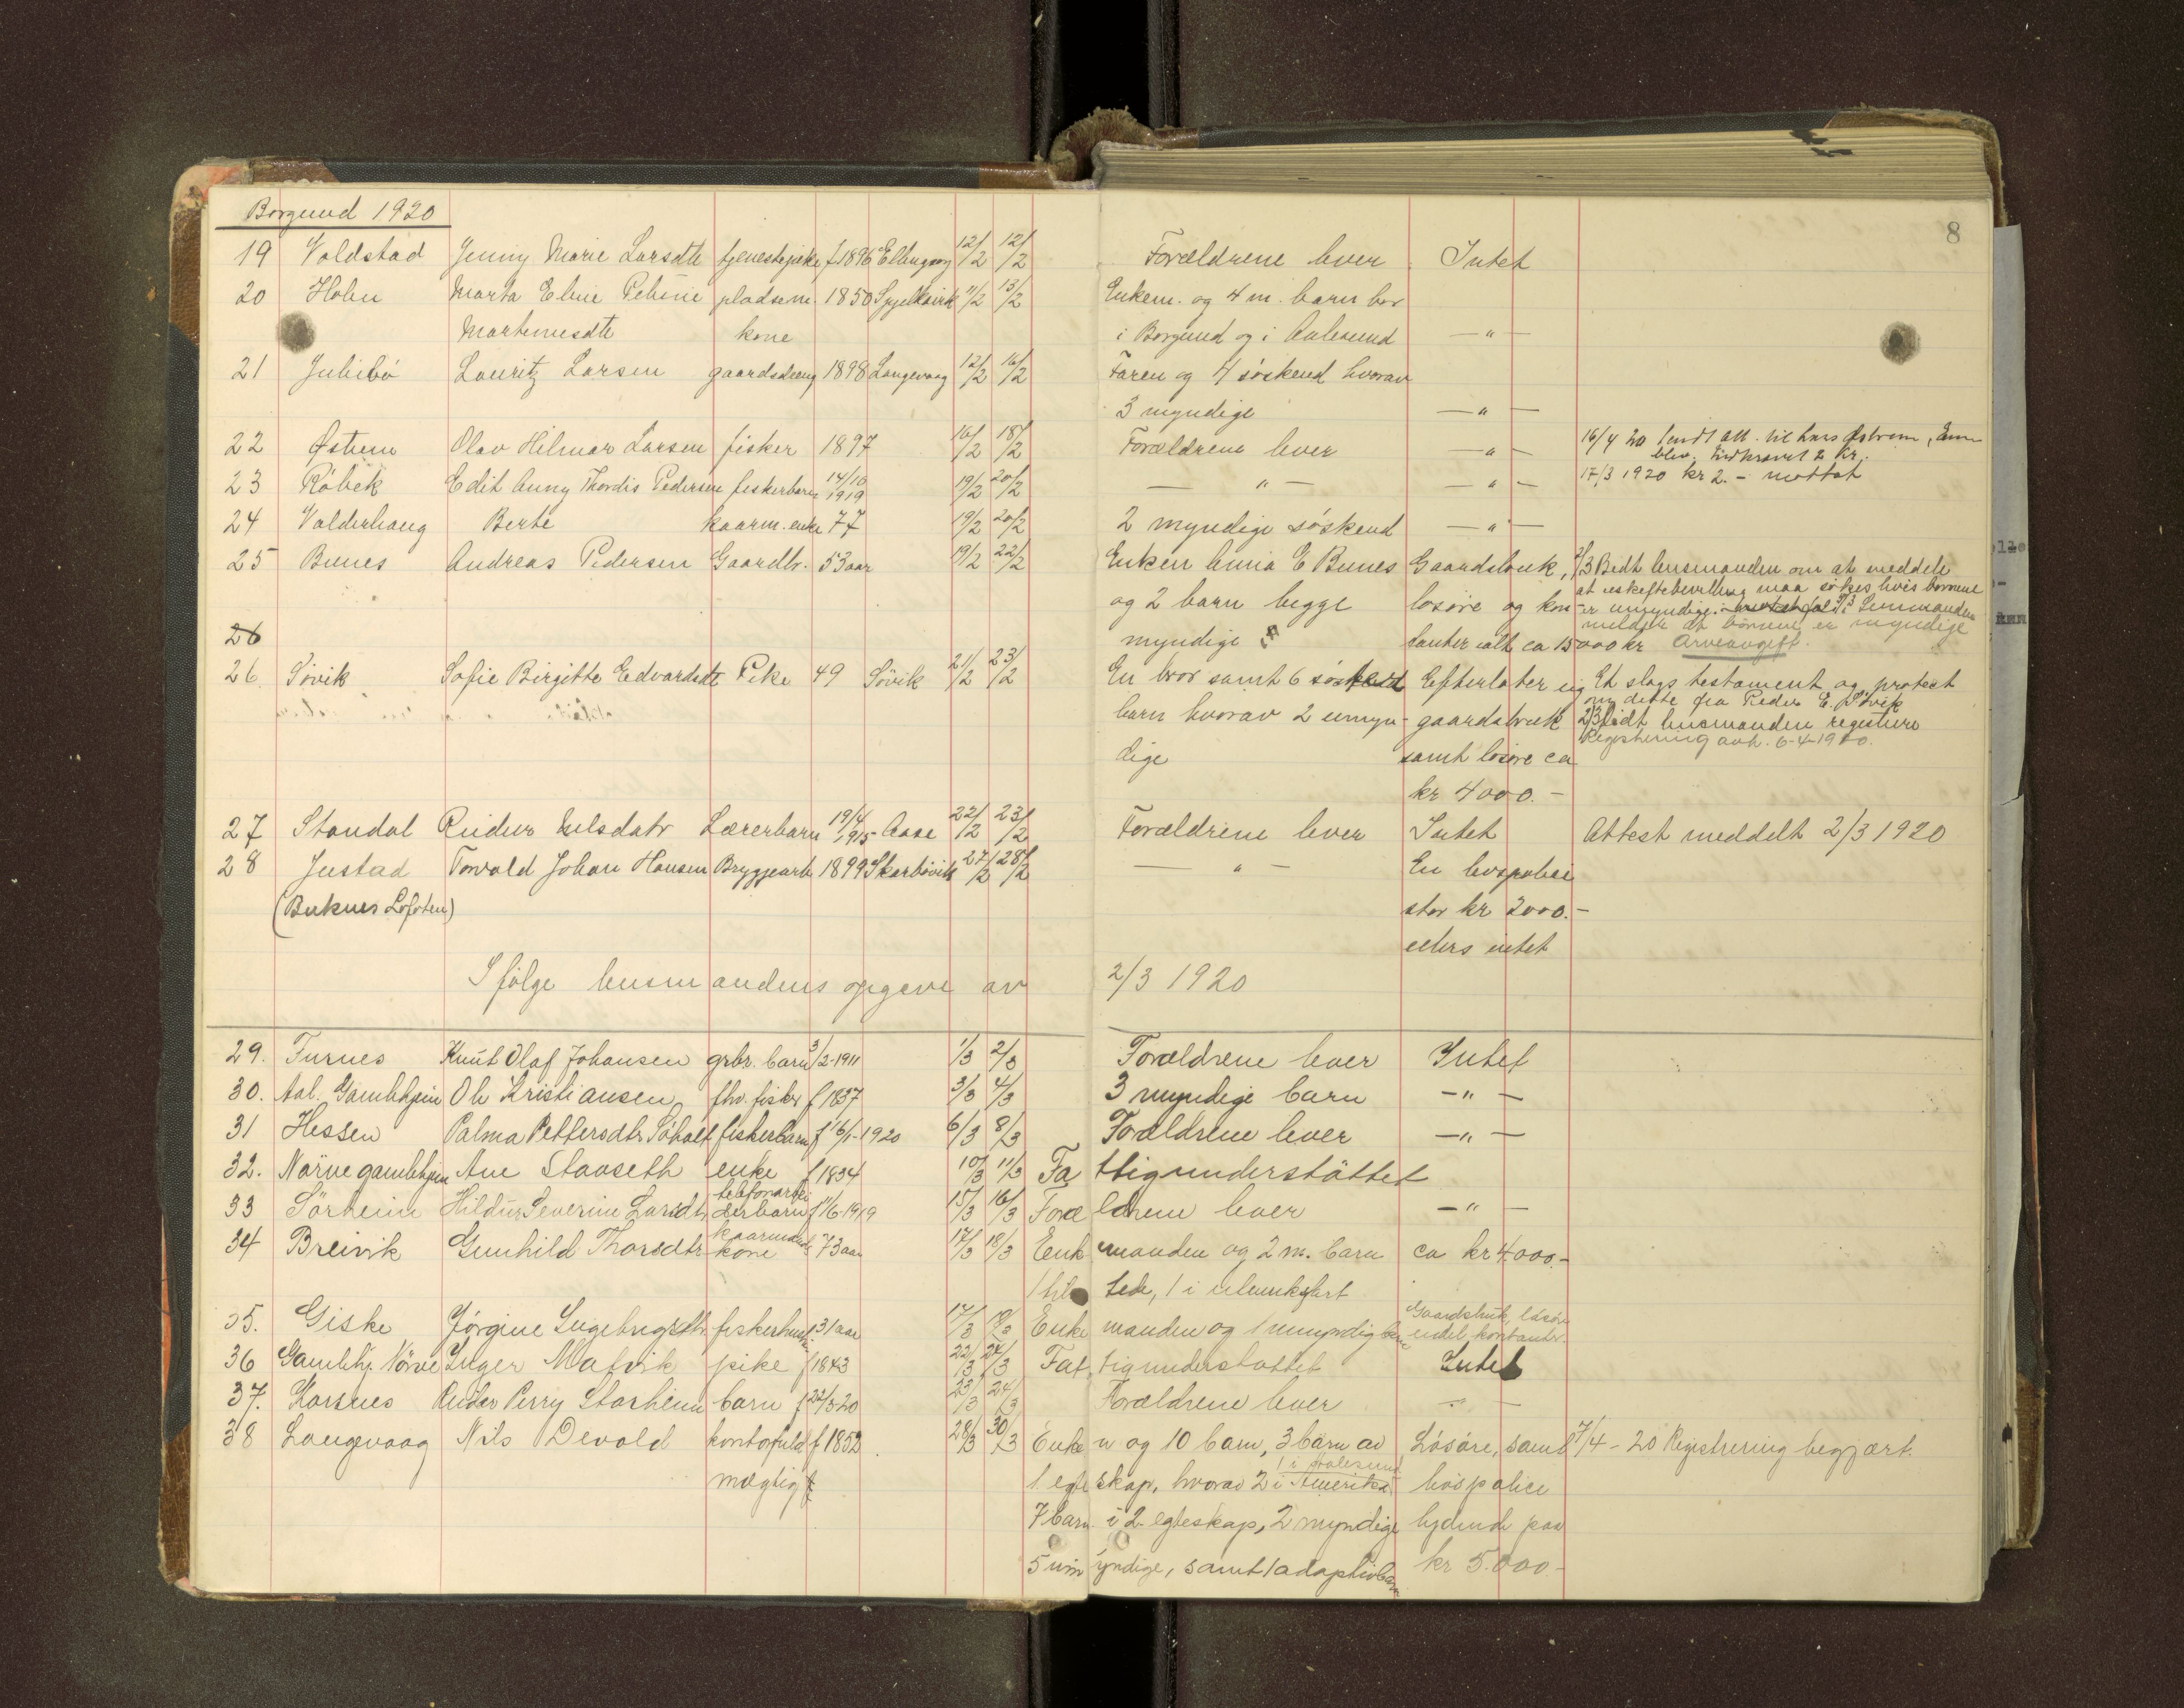 Borgund 1920
8
19 Valdstad Jenny Marie Larsdtr tjenestepike f 1896 Ellingsøy 12/2 12/2 Forældrene lever Intet
20 Holen Marta Eline Petrine pladsm. 1850 Spjelkavik 11/2 13/2 Enkem. og 4 m. barn bor
Martinusdtr kone i Borgund og i Aalesund —"—
21 Julibø Lauritz Larsen gaardsdreng 1898 Langevaag 12/2 16/2 Faren og 4 søskend hvorav
3 myndige —"—
22 Østrem Olav Hilmar Larsen fisker 1897 16/2 18/2 Forældrene lever —"— 16/4 20 sendt att. til Lars Østrem,
2 kr.
23 Röbek Edit Anny Thordis Pedersen fiskerbarn 14/10 1919 19/2 20/2 —"— —"— 17/3 1920 kr 2.- mottat
24 Valderhaug Berte kaarm. enke 77 19/2 20/2 2 myndige søskend —"—
25 Bunes Andreas Pedersen Gaardbr. 53 aar 19/2 22/2 Enken Anna E Bunes Gaardsbruk, 2/3 Bedt lensmanden om at meddele
at uskiftebevilling maa søkes hvis børnene
og 2 barn begge løsøre og kon- er umyndige. Lensmanden
melder at børnene er myndige
26 myndige tanter ialt ca 15000 kr Arveavgift.
26. Søvik Sofie Birgitte Edvardsdt Pike 49 Søvik 21/2 23/2 En bror samt 6 søskend Efterlater sig Et slags testament og protest
om dette fra Peder E. Søvik
barn hvorav 2 umyn- gaardsbruk 2/3 bedt lensmanden registrere
Registrering avh. 6-4-1920.
dige samt løsøre ca
kr 4000.-
27 Standal Reidun Nilsdatr Lærerbarn 19/4 1915 Aase 22/2 23/2 Forældrene lever Intet Attest meddelt 2/3 1920
28 Justad Torvald Johan Hansen Bryggearb. 1899 Skarbøvik 27/2 28/2 —"— En livspolise
(Buknes Lofoten) stor kr 2000.-
ellers intet
Ifølge lensmandens opgave av 2/3 1920
29. Furnes Knut Olaf Johansen grbr. barn 3/2-1911 1/3 2/3 Forældrene lever Intet
30. Aal. Gamlehjem Ole Kristiansen fhv. fisker f 1837 3/3 4/3 3 myndige barn —"—
31 Hessen Palma Pettersdtr Søholt fiskerbarn f 16/1-1920 6/3 8/3 Forældrene lever —"—
32. Nørve gamlehjem Ane Stavseth enke f 1834 10/3 11/3 Fattigunderstöttet
telefonarbei
33 Sörheim Hildur Severine Larsdtr derbarn f 1/6-1919 15/3 16/3 Forældrene lever —"—
kaarmands
34 Breivik Gunhild Thorsdtr kone 73 aar 17/3 18/3 Enkemanden og 2 m. barn ca kr 4000.-
1 tilstede, 1 i utenriksfart
Gaardsbruk, løsøre
35. Giske Jørgine Ingebrigtsdtr fiskerhustru 31 aar 17/3 18/3 Enkemanden og 1 umyndig barn endel kontanter.
36 Gamlehj. Nörve Inger Mafvik pike f 1843 22/3 24/3 Fattigunderstøttet Intet
37. Korsnes Reidar Perry Storheim barn f 22/3 20 23/3 24/3 Forældrene lever —"—
38 Langevaag Nils Devold kontorfuld f 1852. 28/3 30/3 Enken og 10 barn, 3 barn av Løsøre, samt 7/4-20 Registrering begjært.
1 i Aalesund
mægtig 1. egteskap, hvorav 2 i Amerika livspolice
7 barn i 2. egteskap, 2 myndige lydende paa
5 umyndige, samt 1 adoptivbarn kr 5.000.-